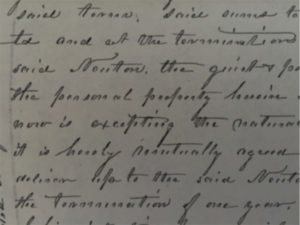 said term. said sums to
to and at the termination
said Newton. the quiet & p
the personal property herein
now is excepting the natura
it is hereby mutually agreed
deliver up to the said Newto
the termination of one year.